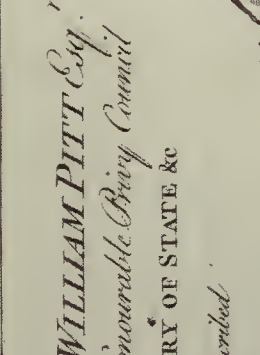 WILLIAM PITT Esq.r
nourable Privy Council
RY OF STATE &c
cribed